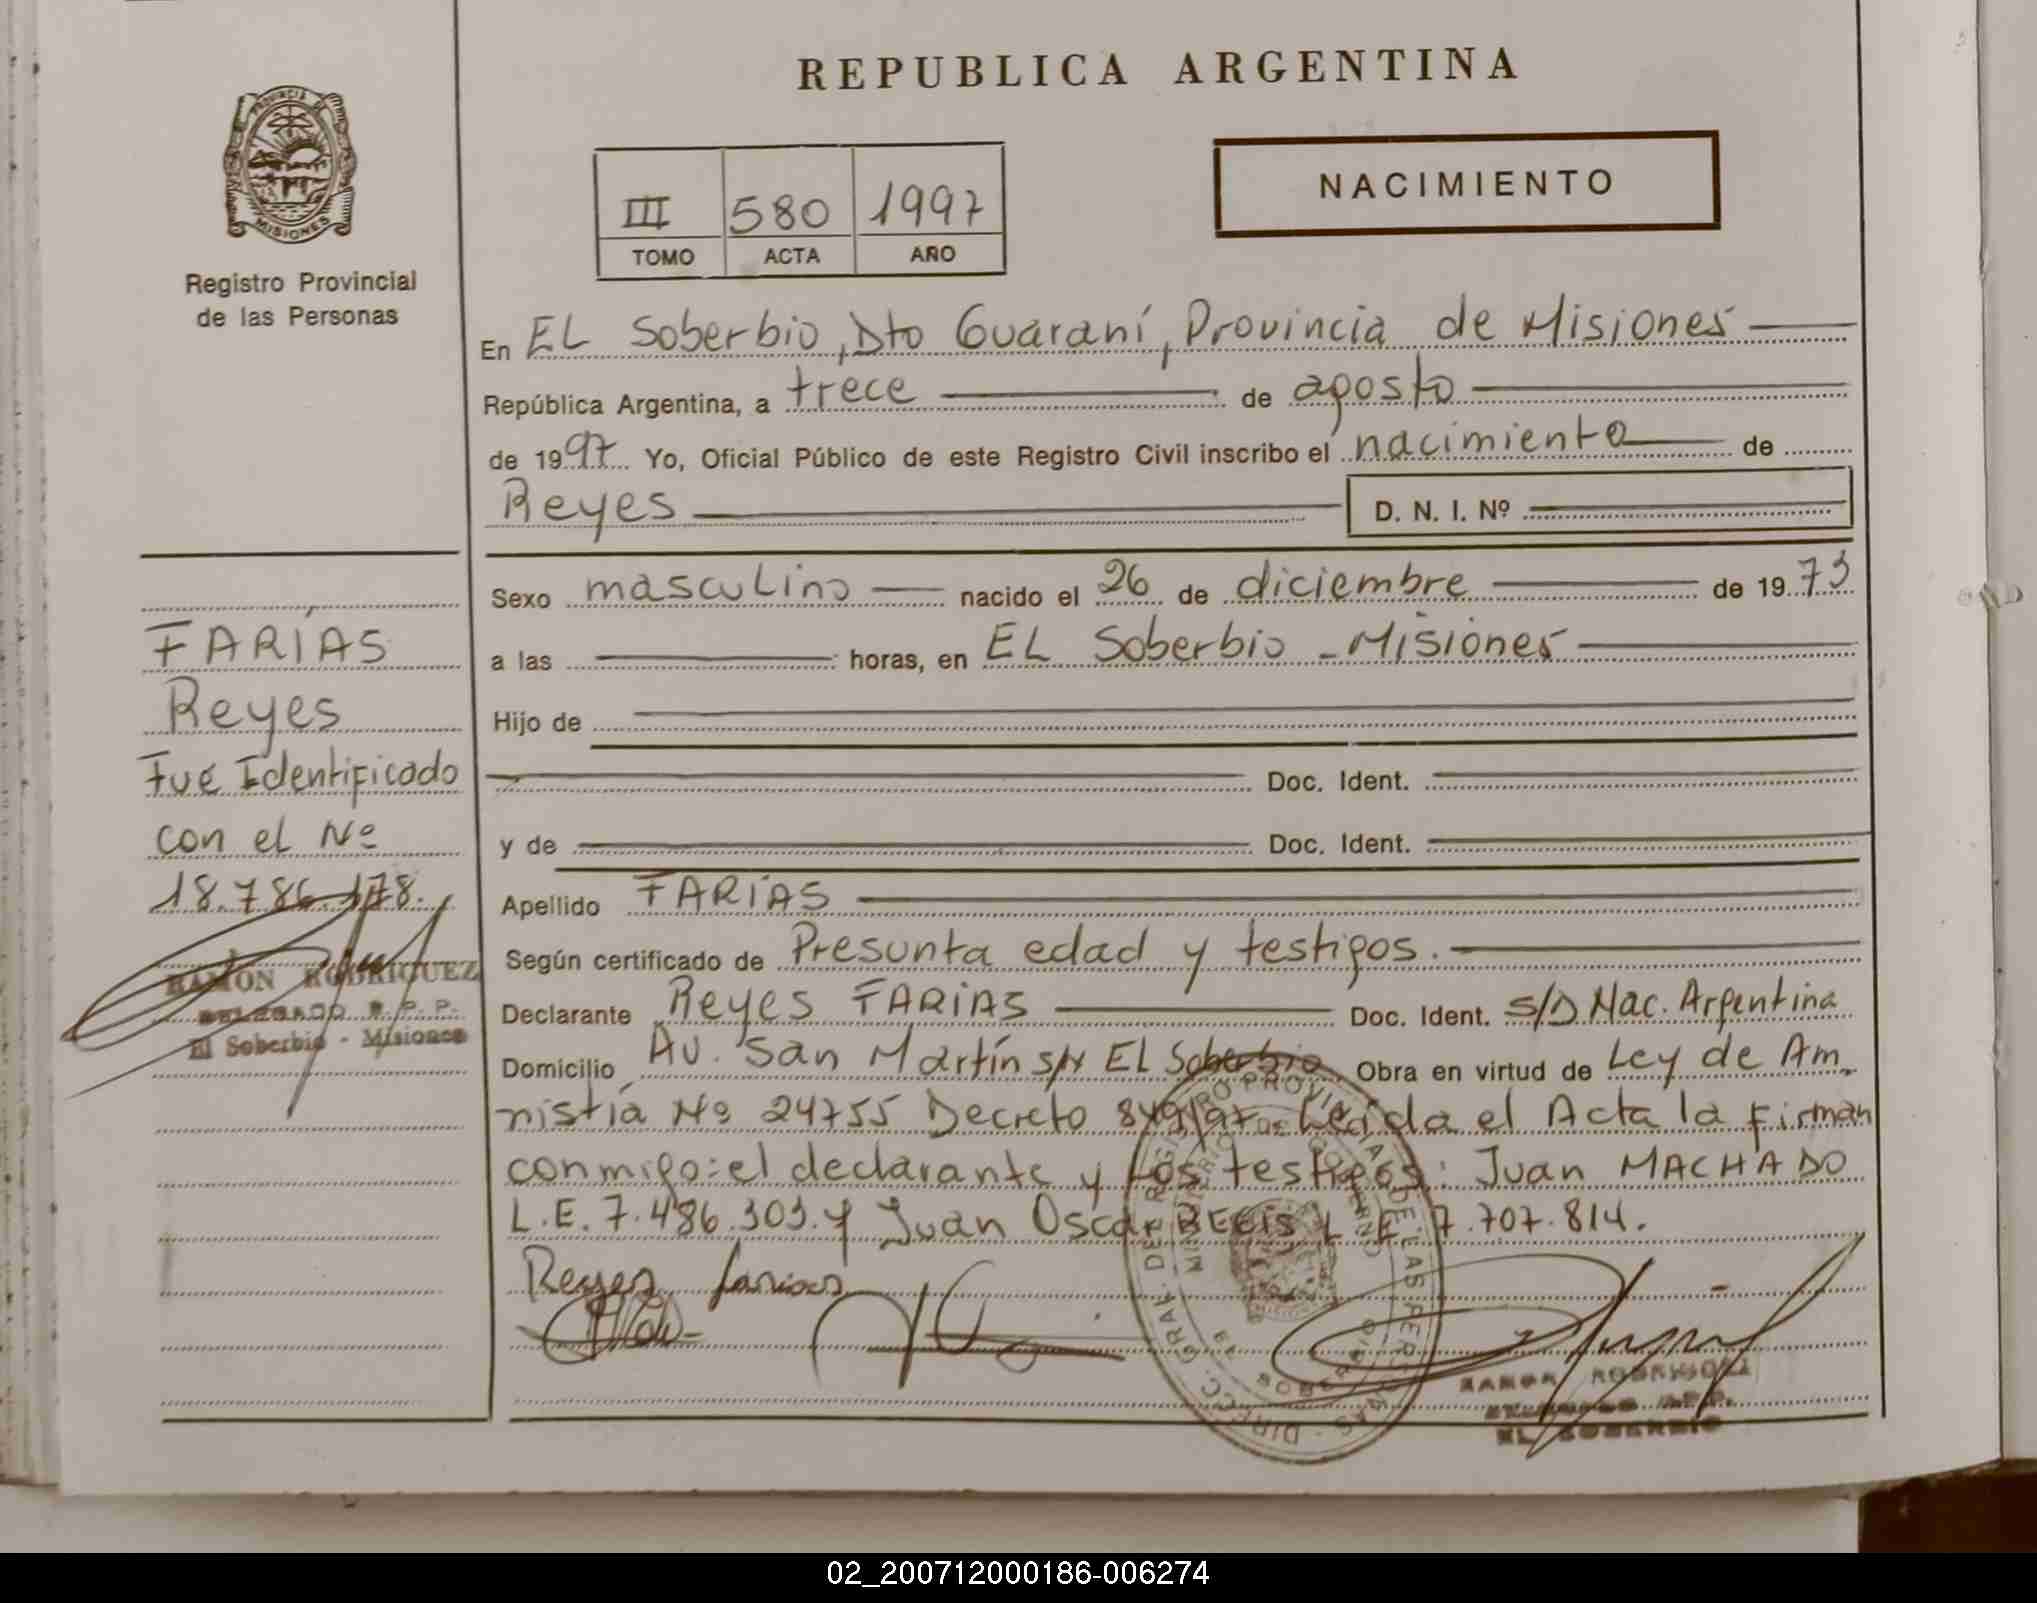 REPUBLICA ARGENTINA
PROVINCIA DE
MISIONES
Registro Provincial
de las Personas
III 580 1997
TOMO ACTA AÑO
NACIMIENTO
En EL Soberbio, Dto Guaraní, Provincia de Misiones
República Argentina, a trece de agosto
de 1997 Yo, Oficial Público de este Registro Civil inscribo el nacimiento de
Reyes D. N. I. Nº
Sexo masculino nacido el 26 de diciembre de 1973
a las horas, en EL Soberbio - Misiones
Hijo de
Doc. Ident.
y de Doc. Ident.
Apellido FARÍAS
Según certificado de Presunta edad y testigos.
Declarante Reyes FARÍAS Doc. Ident. S/D Nac. Argentina
Domicilio Av. San Martín s/N EL Soberbio Obra en virtud de Ley de Am
nistía Nº 24755 Decreto 849/97 Leída el Acta la firman
conmigo: el declarante y los testigos: Juan MACHADO
L.E. 7.486.303. y Juan Oscar L E 7.707.814.
Reyes farias
FARÍAS
Reyes
Fué Identificado
con el Nº
18.786.178.
RAMON RODRIGUEZ
DELEGADO R. P. P.
El Soberbio - Misiones
RAMON RODRIGUEZ
DELEGADO R.P.P.
EL SOBERBIO
02_200712000186-006274